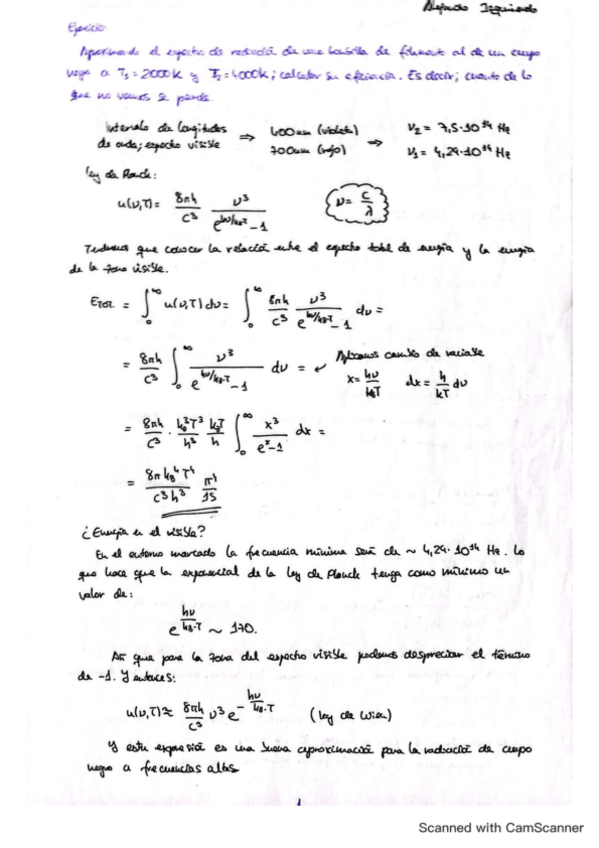 Alejandro Izquierdo
Ejercicio:
Aproximando el espectro de radiación de una bombilla de filamento al de un cuerpo
negro a T₁ = 2000K y T₂ = 4000K; calcular su eficiencia. Es decir; cuanto de lo
que no vemos se pierde.
Intervalo de longitudes de onda; espectro visible ⇒ 400nm (violeta) 700nm (rojo) ⇒ ν₂ = 7,5·10¹⁴ Hz ν₁ = 4,29·10¹⁴ Hz
Ley de Planck:
u(ν,T) = 8πh/c³ ν³/(e^(hν/k_B·T) - 1) ν = c/λ
Tendremos que conocer la relación entre el espectro total de energía y la energía
de la zona visible.
E_TOT. = ∫₀^∞ u(ν,T) dν = ∫₀^∞ 8πh/c³ ν³/(e^(hν/k_B·T) - 1) dν =
= 8πh/c³ ∫₀^∞ ν³/(e^(hν/k_B·T) - 1) dν = Aplicamos cambio de variable x = hν/k_BT dx = h/kT dν
= 8πh/c³ · k_B³T³/h³ k_BT/h ∫₀^∞ x³/(eˣ-1) dx =
= 8π k_B⁴ T⁴/c³h³ π⁴/15
¿Energía en el visible?
En el entorno marcado la frecuencia mínima será de ~ 4,29·10¹⁴ Hz. Lo
que hace que la exponencial de la ley de Planck tenga como mínimo un
valor de:
e^(hν/k_B·T) ~ 170.
Así que para la zona del espectro visible podemos despreciar el término
de -1. Y entonces:
u(ν,T) ≈ 8πh/c³ ν³ e^(-hν/k_B·T) (Ley de Wien)
Y esta expresión es una buena aproximación para la radiación de cuerpo
negro a frecuencias altas
1
Scanned with CamScanner